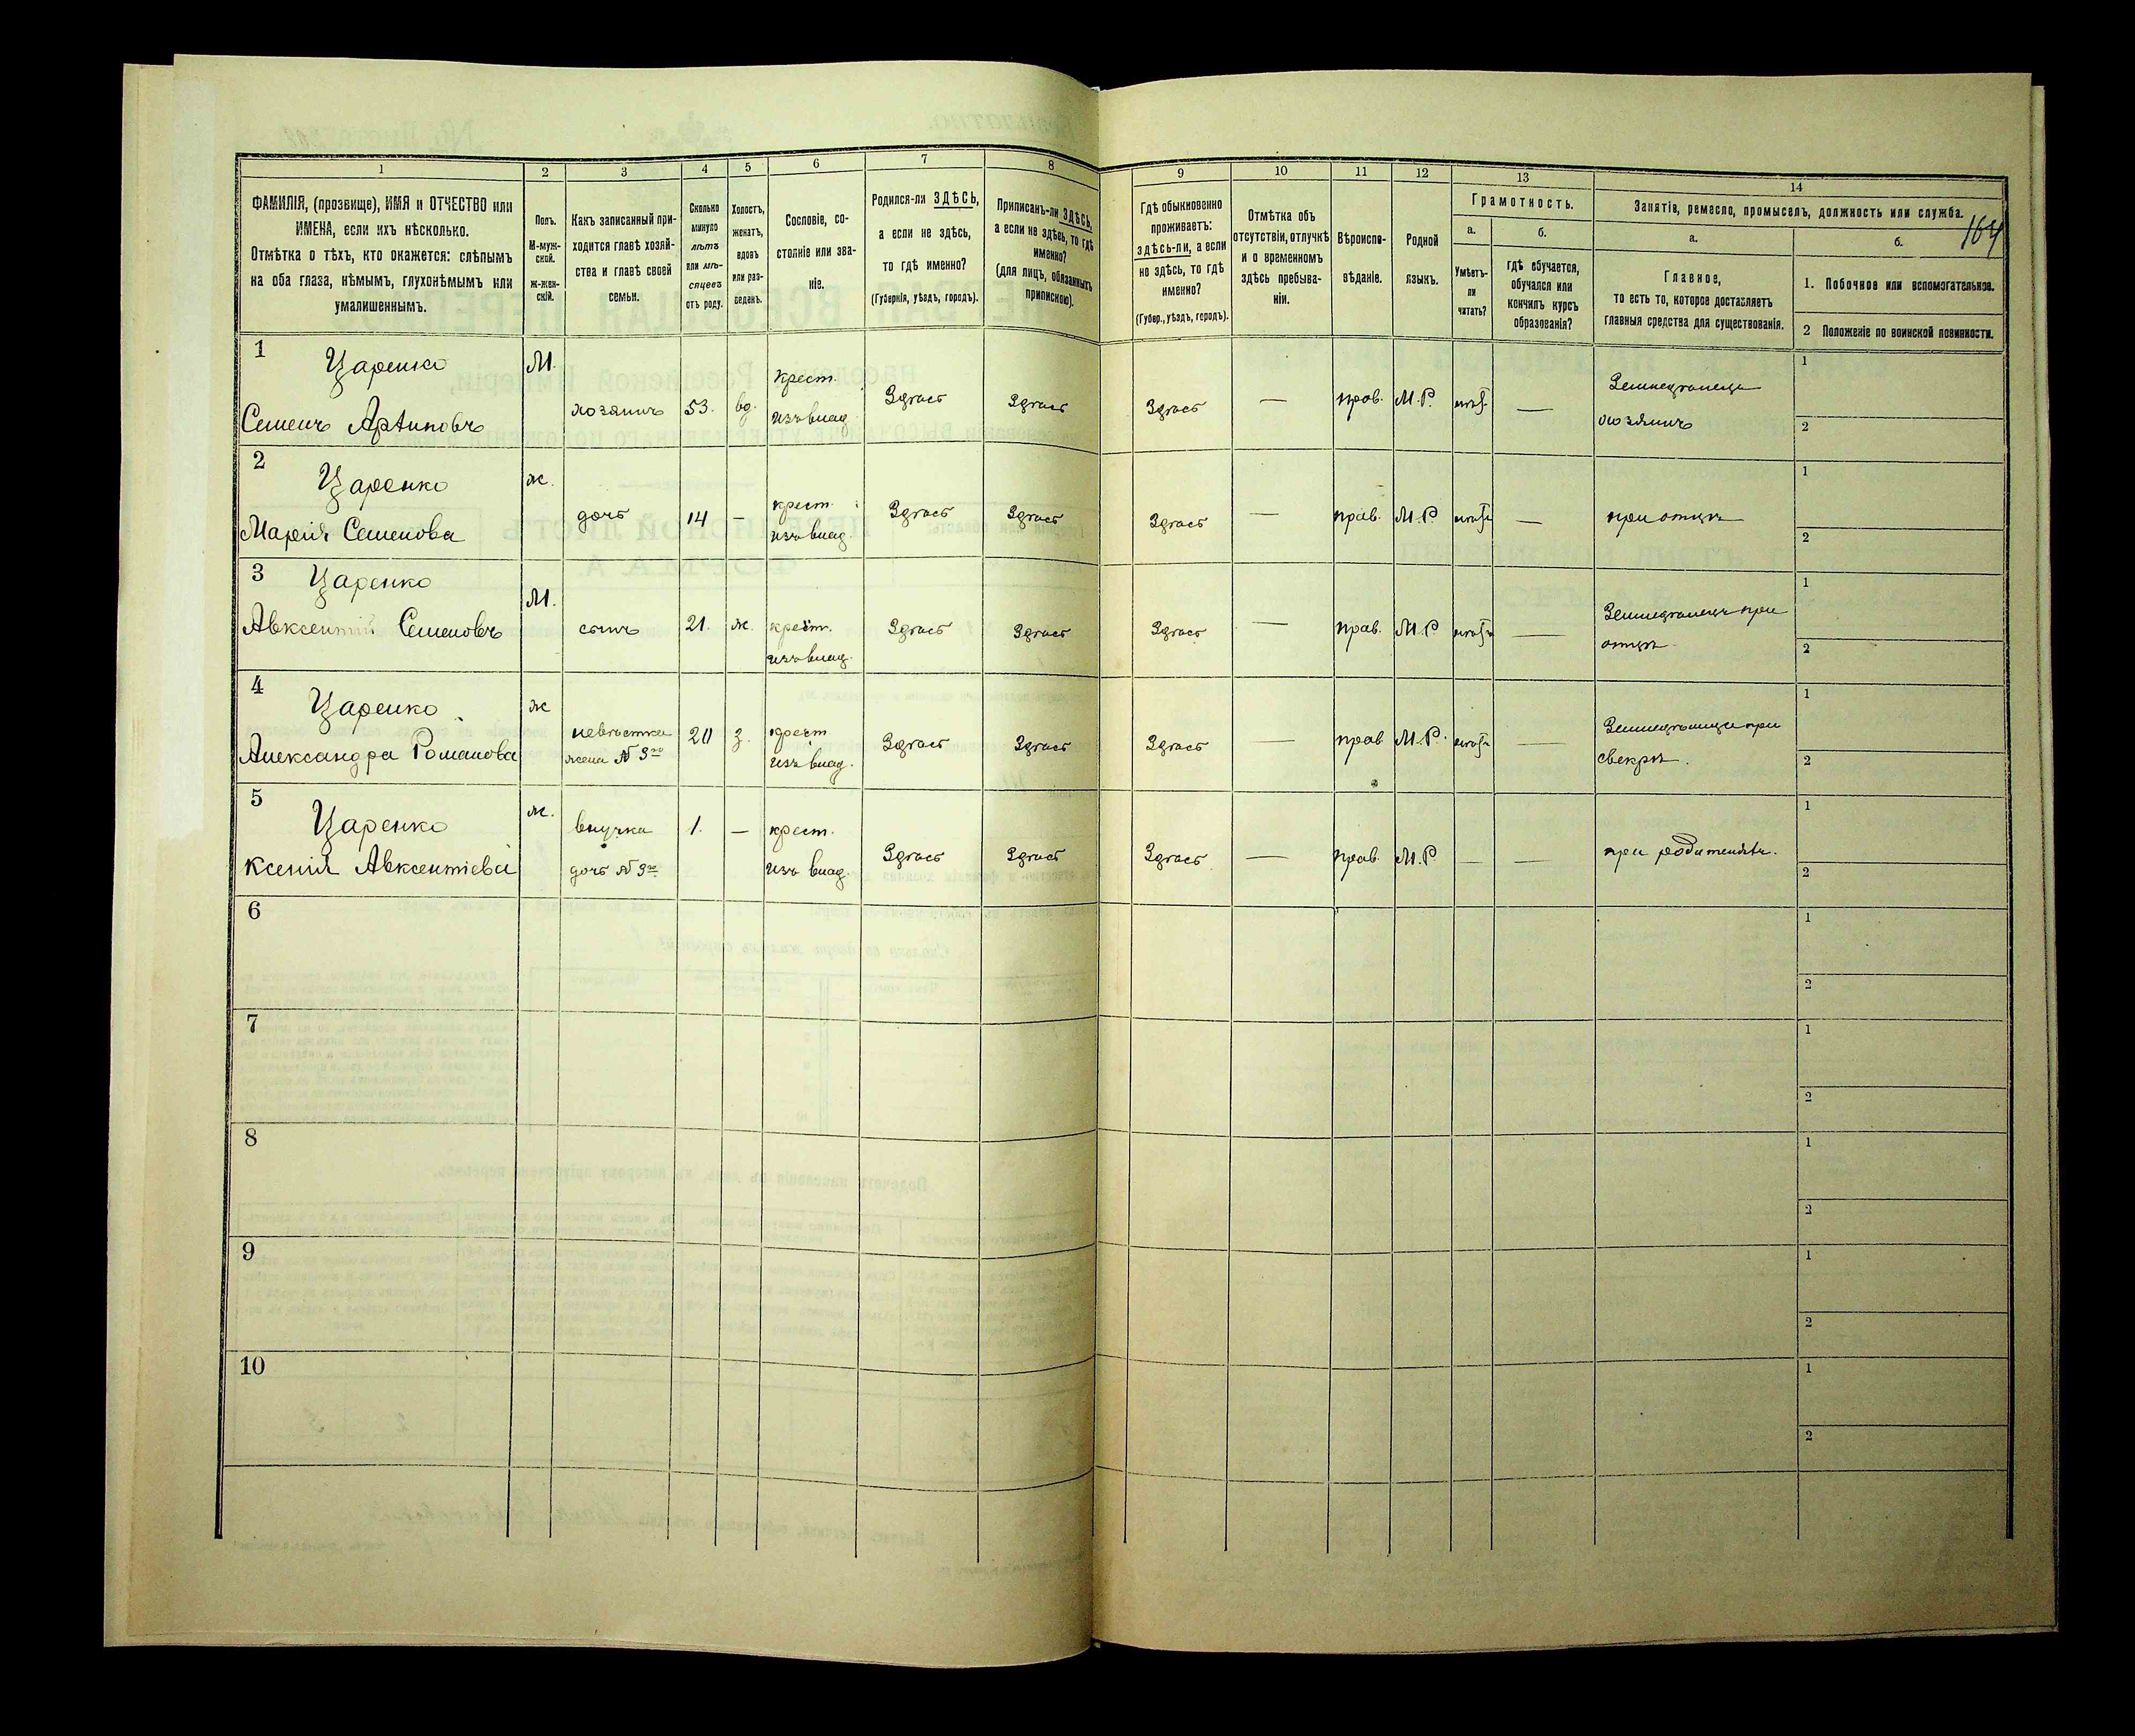 164
1 2 3 4 5 6 7 8 9 10 11 12 13 14
ФАМИЛІЯ, (прозвище), ИМЯ и ОТЧЕСТВО или
ИМЕНА, если ихъ нѣсколько.
Отмѣтка о тѣхъ, кто окажется: слѣпымъ
на оба глаза, нѣмымъ, глухонѣмымъ или
умалишеннымъ.
Полъ.
М-муж-
ской.
Ж-жен-
скій.
Какъ записанный при-
ходится главѣ хозяй-
ства и главѣ своей
семьи.
Сколько
минуло
лѣтъ
или мѣ-
сяцевъ
отъ роду.
Холостъ,
женатъ,
вдовъ
или раз-
веденъ.
Сословіе, со-
стояніе или зва-
ніе.
Родился-ли ЗДѢСЬ,
а если не здѣсь,
то гдѣ именно?
(Губернія, уѣздъ, городъ).
Приписанъ-ли ЗДѢСЬ,
а если не здѣсь, то гдѣ
именно?
(для лицъ, обязанныхъ
припискою).
Гдѣ обыкновенно
проживаетъ:
здѣсь-ли, а если
не здѣсь, то гдѣ
именно?
(Губер., уѣздъ, городъ).
Отмѣтка объ
отсутствіи, отлучкѣ
и о временномъ
здѣсь пребыва-
ніи.
Вѣроиспо-
вѣданіе.
Родной
языкъ.
Грамотность.
а.
Умѣетъ-
ли
читать?
б.
гдѣ обучается,
обучался или
кончилъ курсъ
образованія?
Занятія, ремесло, промыселъ, должность или служба.
а.
Главное,
то есть то, которое доставляетъ
главныя средства для существованія.
б.
1. Побочное или вспомогательное.
2 Положеніе по воинской повинности.
1 Царенко М. хозяинъ 53. вд. крест. изъ влад. Здѣсь Здѣсь Здѣсь — прав. М.Р. — Земледѣлецъ 1
Семенъ хозяинъ 2
2 Царенко ж. дочь 14 — крест. изъ влад. Здѣсь Здѣсь Здѣсь — прав. М.Р. — при отцѣ 1
Марія Семенова 2
3 Царенко М. сынъ 21. ж. крест. изъ влад. Здѣсь Здѣсь Здѣсь — прав. М.Р. — Земледѣлецъ при 1
Авксентій Семеновъ отцѣ 2
4 Царенко ж невѣстка 20 з. крест. изъ влад. Здѣсь Здѣсь Здѣсь — прав М.Р. — при 1
Александра Романова жена № 3го свекрѣ. 2
5 Царенко ж. внучка 1. — крест. изъ влад. Здѣсь Здѣсь Здѣсь — прав. М.Р. — — при родителяхъ. 1
Ксенія Авксентіева дочь № 3го 2
6 1
2
7 1
2
8 1
2
9 1
2
10 1
2